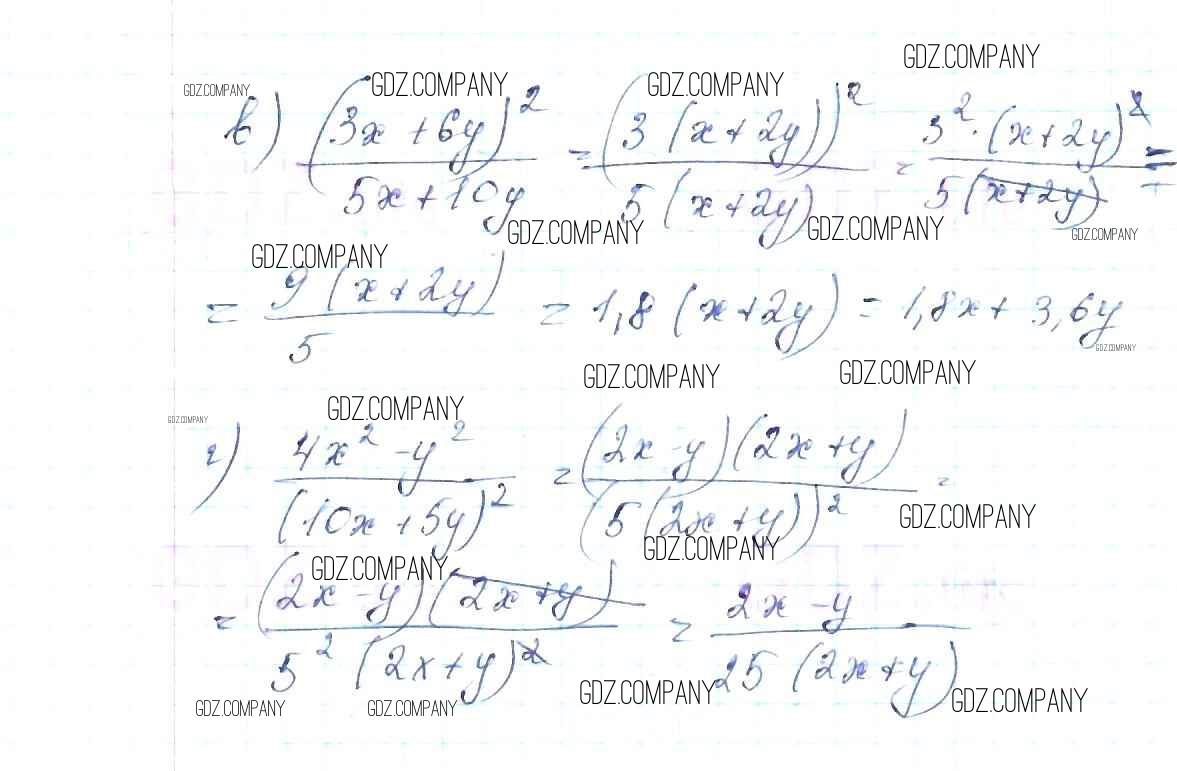 GDZ.COMPANY GDZ.COMPANY GDZ.COMPANY GDZ.COMPANY
в) (3x + 6y)² / 5x + 10y = (3 (x + 2y))² / 5 (x + 2y) = 3² · (x + 2y)² / 5 (x + 2y) =
GDZ.COMPANY GDZ.COMPANY GDZ.COMPANY GDZ.COMPANY
= 9 (x + 2y) / 5 = 1,8 (x + 2y) = 1,8x + 3,6y
GDZ.COMPANY
GDZ.COMPANY GDZ.COMPANY
GDZ.COMPANY GDZ.COMPANY
г) 4x² - y² / (10x + 5y)² = (2x - y)(2x + y) / (5 (2x + y))² =
GDZ.COMPANY GDZ.COMPANY
GDZ.COMPANY
= (2x - y)(2x + y) / 5² (2x + y)² = 2x - y / 25 (2x + y)
GDZ.COMPANY GDZ.COMPANY GDZ.COMPANY GDZ.COMPANY